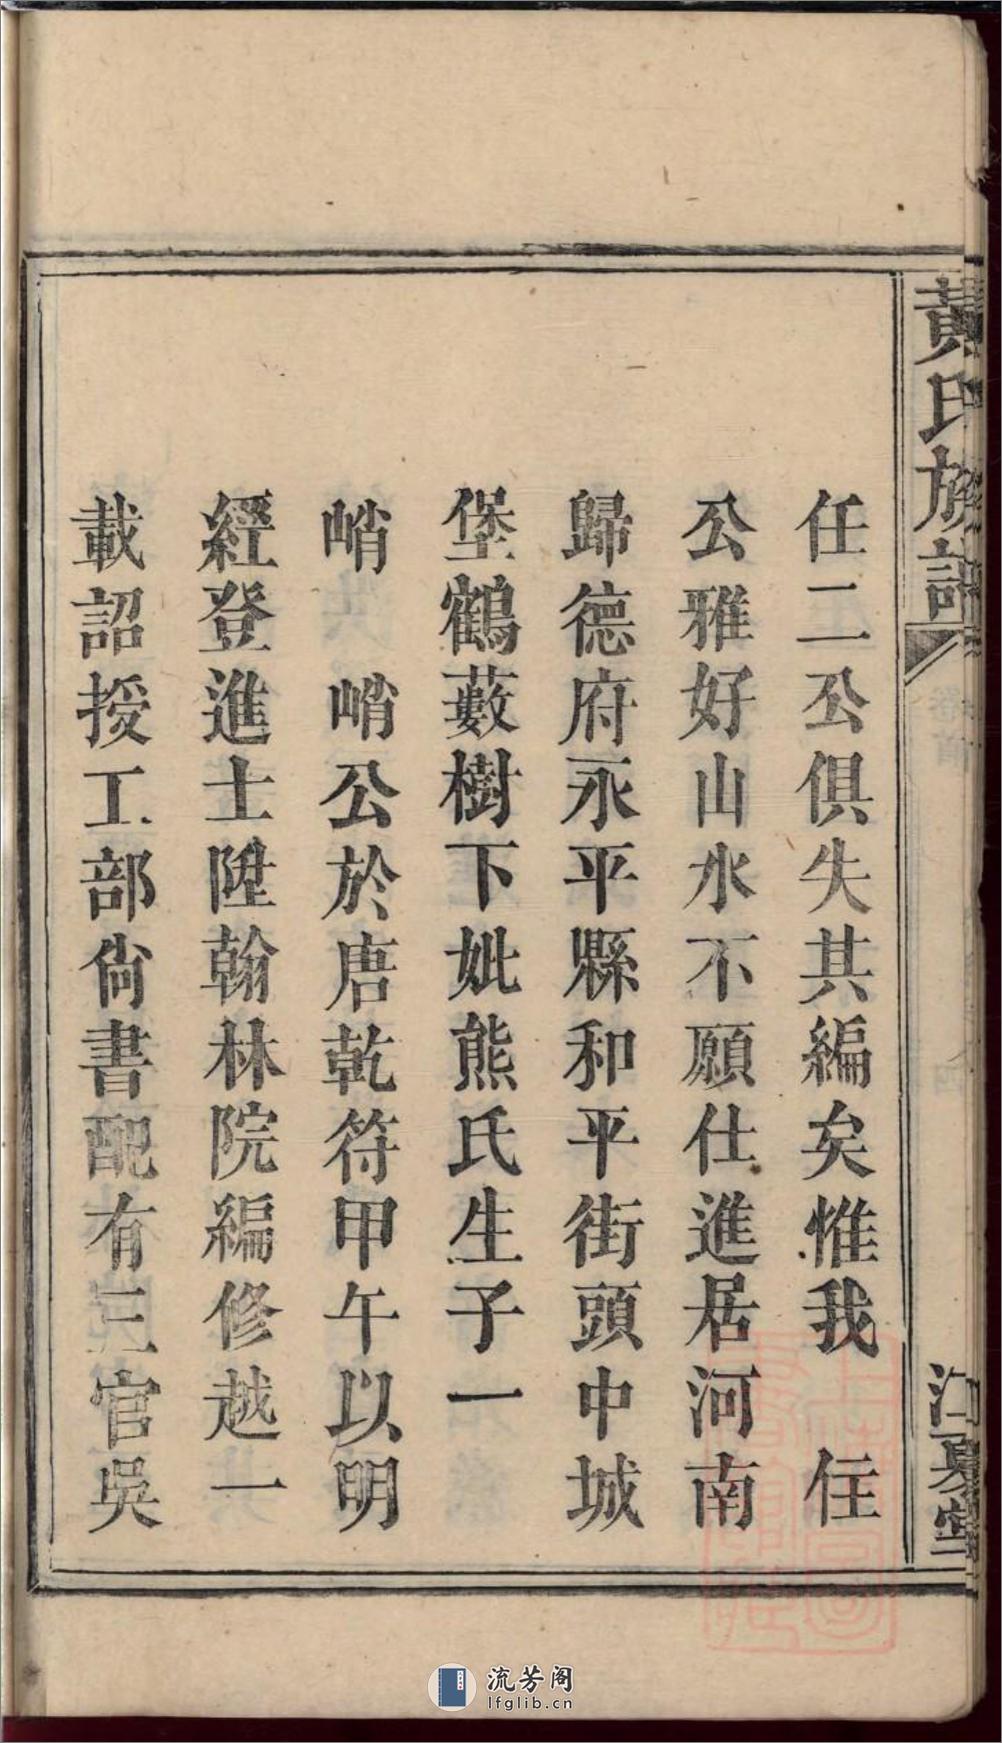 黃氏族譜
江夏堂
任二公俱失其編矣惟我　任
公雅好山水不願仕進居河南
歸德府永平縣和平街頭中城
堡鶴藪樹下妣熊氏生子一
峭　峭公於唐乾符甲午以明
經登進士陞翰林院編修越一
載詔授工部尙書配有三官吳
流芳阁
lfglib.cn